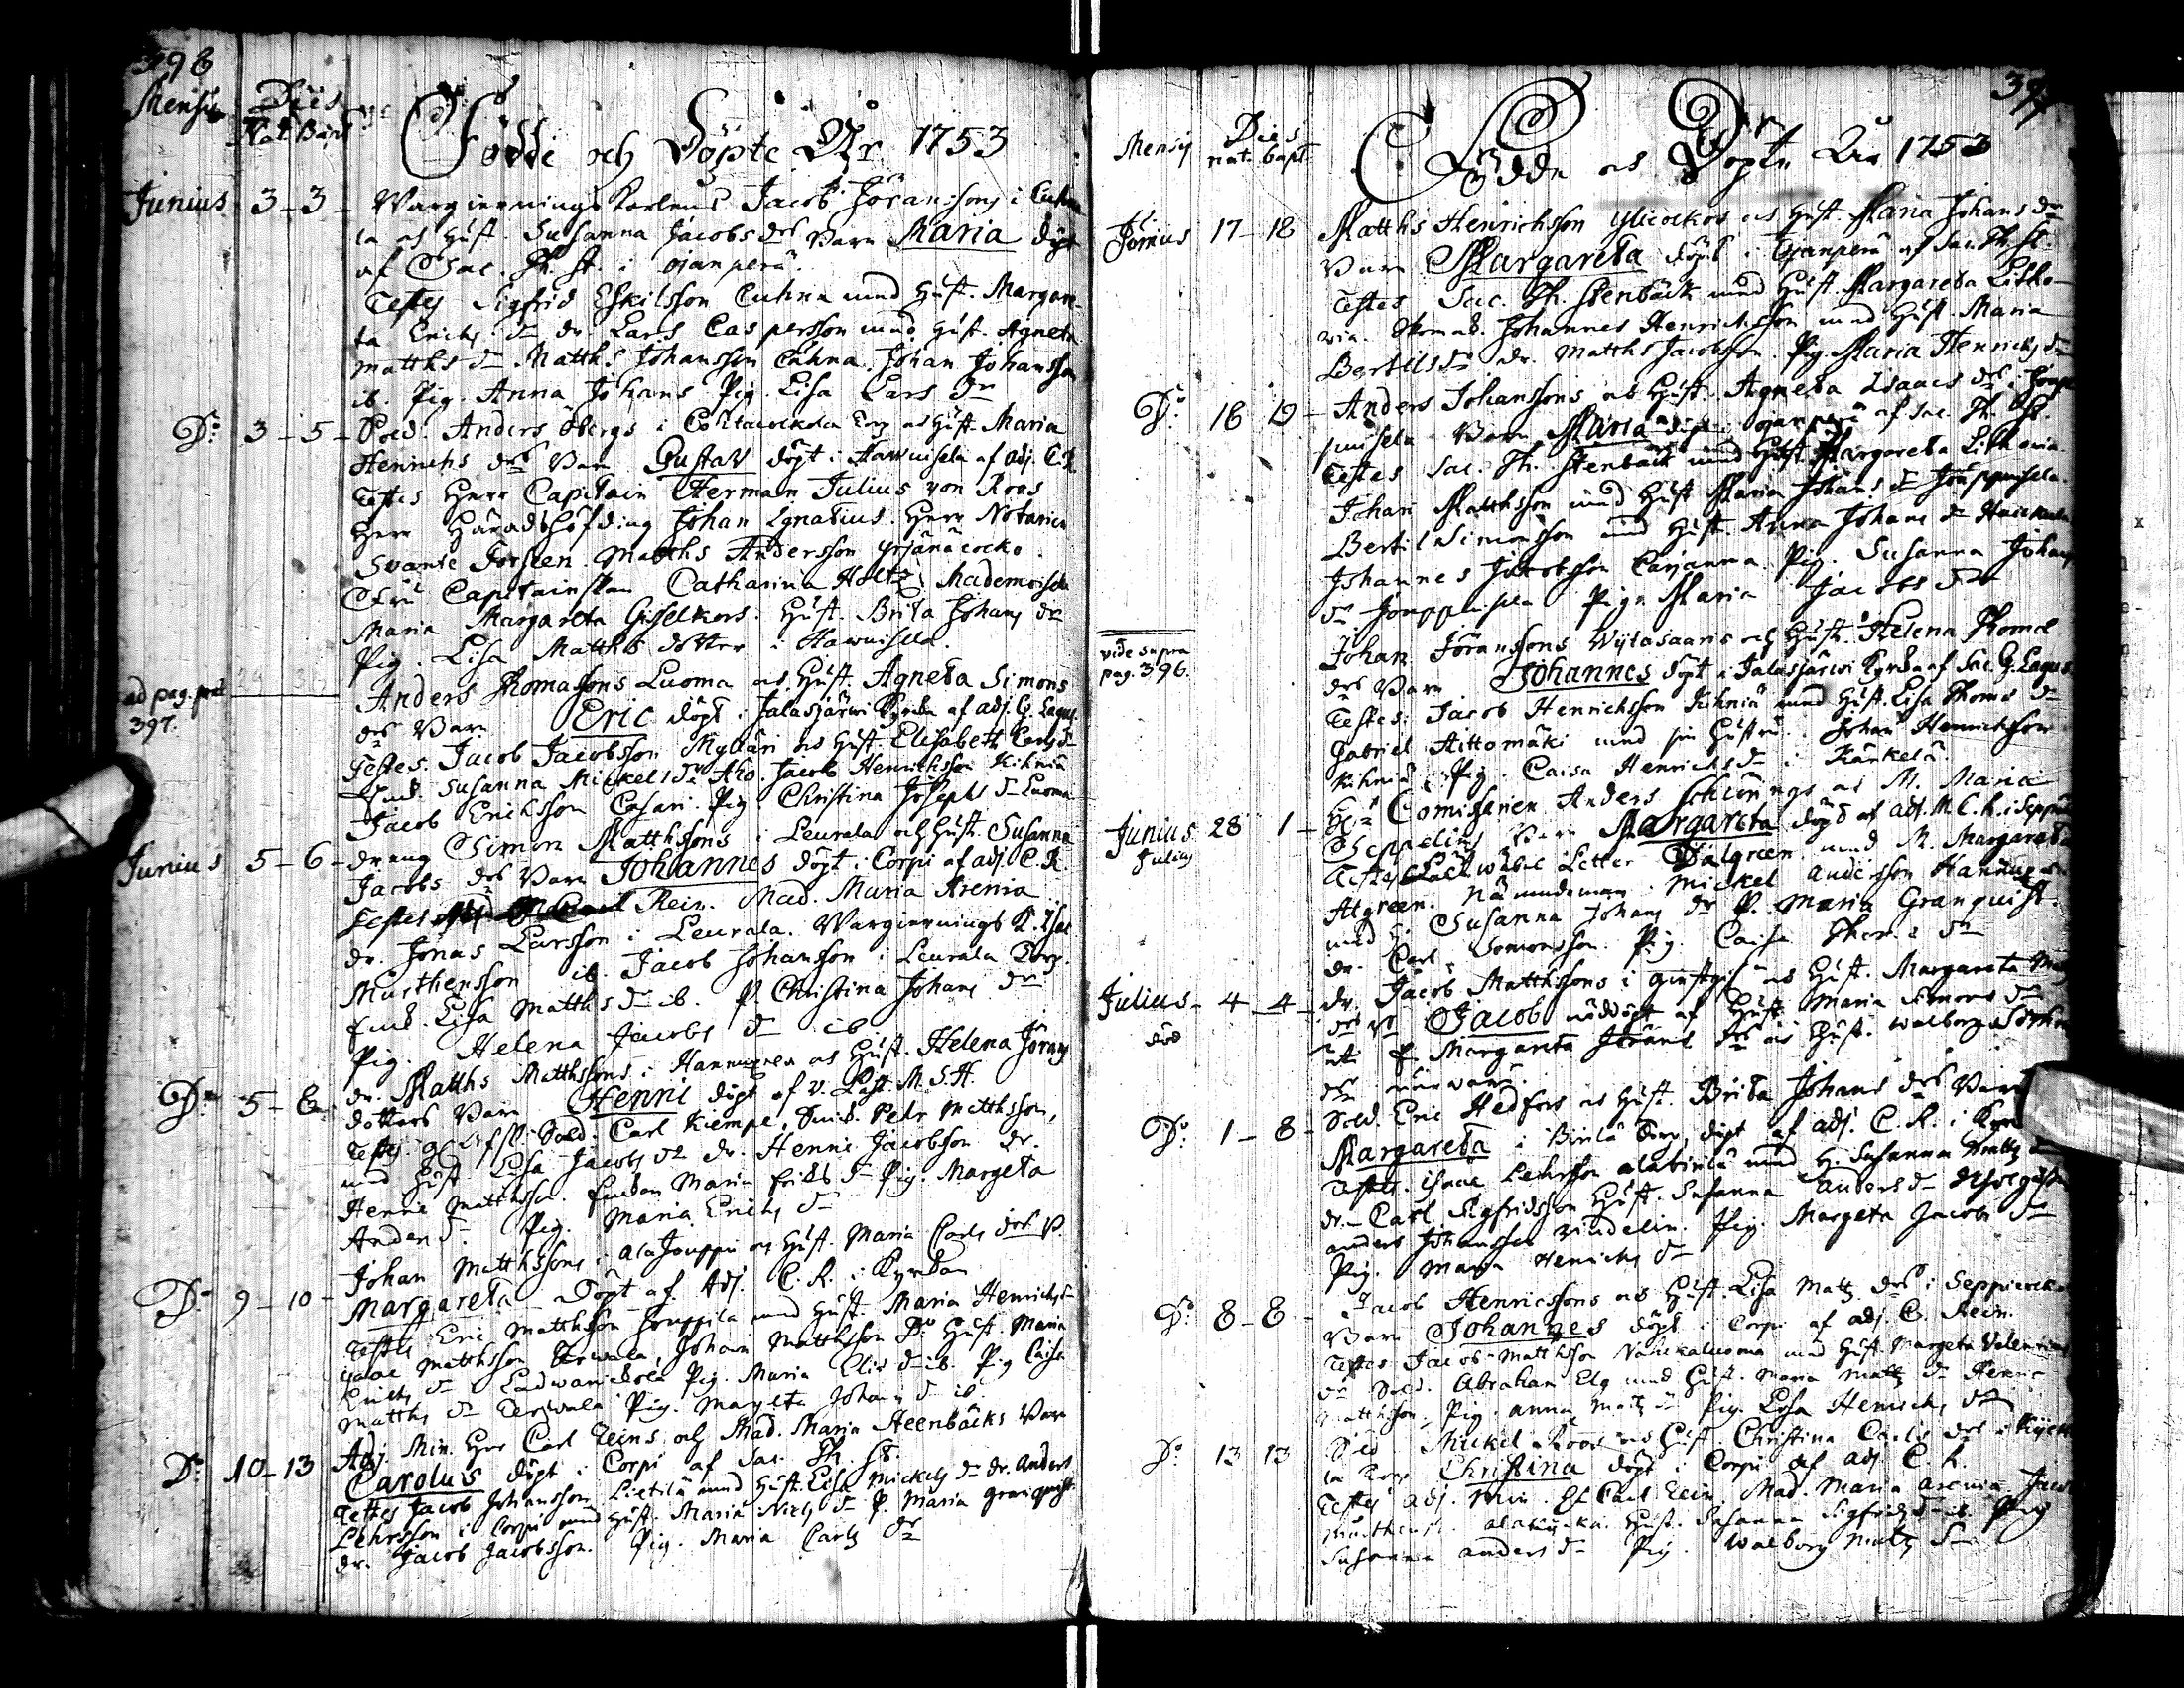 396
Mensis Dies
Nat. Bapt.
Födde och Döpte År 1753
Junius 3-3- Wargierningskarlens Jacob Jöranssons i Cuhna
la och Hust. Susanna Jacobs drs Barn Maria döpt
af Sac. Th. St. i Ojanperä.
Testes Sigfrid Eskilsson Cuhna med Hust. Margare-
ta Erichs dr dr. Lars Caspersson med Hust. Agneta
Matths dr Matths Johansson Cuhna. Johan Johansson
ib. Pig. Anna Johans Pig. Lisa Lars dr
Do 3-5- Sold. Anders Öbergs i Torp och Hust. Maria
Henrichs drs Barn Gustav döpt i af adj. C. R.
Testes Herr Capitain Herman Julius von Roos
Herr Häradshöfding Johan Ignatius. Herr Notarien
Svante Forsteen. Matths Andersson Yrjänäcocko.
Fru Capitainskan Catharina Holtz. Mademoiselle
Maria Margareta Gisselkors. Hust. Brita Johans dr
Pig. Lisa Matths dotter i
ad pag. 397.
Anders Thomassons Luoma och Hust. Agneta Simons
drs Barn Eric döpt i Jalasjärwi Kyrcka af adj. G. Lagus.
Testes. Jacob Jacobsson Mylläri och Hust. Elisabeth Carls dr
Susanna Mickels dr Aho. Jacob Henrichsson Kihniä
Jacob Erichsson Casari. Pig. Christina Josephs dr Luoma
Junius 5-6- dräng Simon Matthssons i Leurala och Hust. Susanna
Jacobs drs Barn Johannes döpt i Corpi af adj. C. R.
Testes Rein. Mad. Maria Arenia
dr. Jonas Larsson i Leurala. Wargiernings K. Isac
Murthensson ib. Jacob Johansson i Leurala Torp.
Lisa Matths dr ib. P. Christina Johans dr
Pig. Helena Jacobs dr ib.
Do 5-6- dr. Matths Matthssons i Hannuxen och Hust. Helena Jörans
dotters Barn Henric döpt af v. Past. M. S. H.
Testes. Sold. Carl Kiempe, Petr Matthsson,
med Hust. Lisa Jacobs dr dr. Henric Jacobsson dr.
Henric Matthsson. Maria Erichs dr Pig. Margeta
Anders dr. Pig. Maria Erichs dr
Do 9-10- Johan Matthssons i Ala Jouppi och Hust. Maria Carls drs B.
Margareta Döpt af Adj. C. R. i Kyrckan
Testes Eric Matthsson Jouppila med Hust. Maria Henrichs dr
Isaac Matthsson Terwala, Johan Matthsson Do Hust. Maria
Erichs dr Pig. Maria Elis dr ib. Pig. Caisa
Matths dr Terwala Pig. Margeta Johans dr ib.
Do 10-13 Adj. Min. Herr Carl Reins och Mad. Maria Steenbäcks Barn
Carolus döpt i Corpi af Sac. Th. St.
Testes Jacob Johansson Lietilä med Hust. Lisa Mickels dr dr. Anders
Lehrsson i Corpi med Hust. Maria Niels dr P. Maria Granquist
dr. Jacob Jacobsson. Pig. Maria Carls dr
397
Mensis Dies
nat. bapt.
Födde och Döpte År 1753
Junius 17-18 Matths Henrichsson Ylicockos och Hust. Maria Johans dr
Barn Margareta döpt i Ojanperä af Sac. Th. St.
Testes Sac. Th. Stenbäck med Hust. Margareta Litho-
via. Johannes Henrichsson med Hust. Maria
Bertils dr dr. Matths Jacobsson. Pig. Maria Henrichs dr
Do 18 19- Anders Johanssons och Hust. Agneta Isaacs drs i Joup
pisela Barn Maria döpt i Ojanperä af Sac. Th. St.
Testes Sac. Th. Stenbäck med Hust. Margareta Lithovia.
Johan Matthsson med Hust. Maria Johans dr Jouppisela.
Bertil Simonsson med Hust. Anna Johans dr
Johannes Jacobsson Carjanma. Pig. Susanna Johans
dr. Jouppisela Pig. Maria Jacobs dr
vide supra
pag. 396.
Johan Jöranssons Wijtasaaris och Hust. Helena Thomæ
drs Barn Johannes döpt i Jalasjärwi Kyrcka af Sac. G. Lagus
Testes: Jacob Henrichsson Kihniä med Hust. Lisa Thomæ dr
Gabriel Aittomäki med sin Hustru. Johan Henrichsson
Kihniä. Pig. Caisa Henrichs dr i Känkelä.
Junius 28 1-
Julius
Comissarien Anders Schörings och M. Maria
Seppelins Barn Margareta döpt af adj. M. C. R. i
Testes Petter Dalgreen med M. Margareta
Algreen. Nämndeman Mickel Andersson
med H. Susanna Johans dr P. Maria Granquist.
dr. Carl Somonsson. Pig. Caisa Thom. dr
Julius- 4-4- dr. Jacob Matthssons i och Hust. Margareta
drs B. Jacob nöddöpt af Hust. Maria Simons dr
död
Margareta Jörans dr och Hust. Walborg
dr närwar.
Do 1-8- Sold. Eric Hedfors och Hust. Brita Johans drs Barn
Margareta i Torp, döpt af adj. C. R. i
Testes. Isaac Lehrsson med H. Susanna Matts dr
dr.- Carl Sigfridsson Hust. Susanna Anders dr
Anders Johansson Pig. Margeta Jacobs dr
Pig. Maria Henrichs dr
Do 8-8- Jacob Henricssons och Hust. Lisa Matz drs i
Barn Johannes döpt i Corpi af adj. C. Rein.
Testes Jacob Matthsson med Hust. Margeta
dr Sold. Abraham Elg med Hust. Maria Matts dr Henric
Matthsson. Pig. Anna Matz dr Pig. Lisa Henrichs dr
Do 13 13 Sold. Mickel Roos och Hust. Christina Carls drs i
la Torp Christina döpt i Corpi af adj. C. R.
Testes adj. Min. Carl Rein. Mad. Maria Arenia. Jacob
Hust. Susanna Sigfrids dr ib. Pig
Susanna Anders dr Pig. Walborg Matz dr